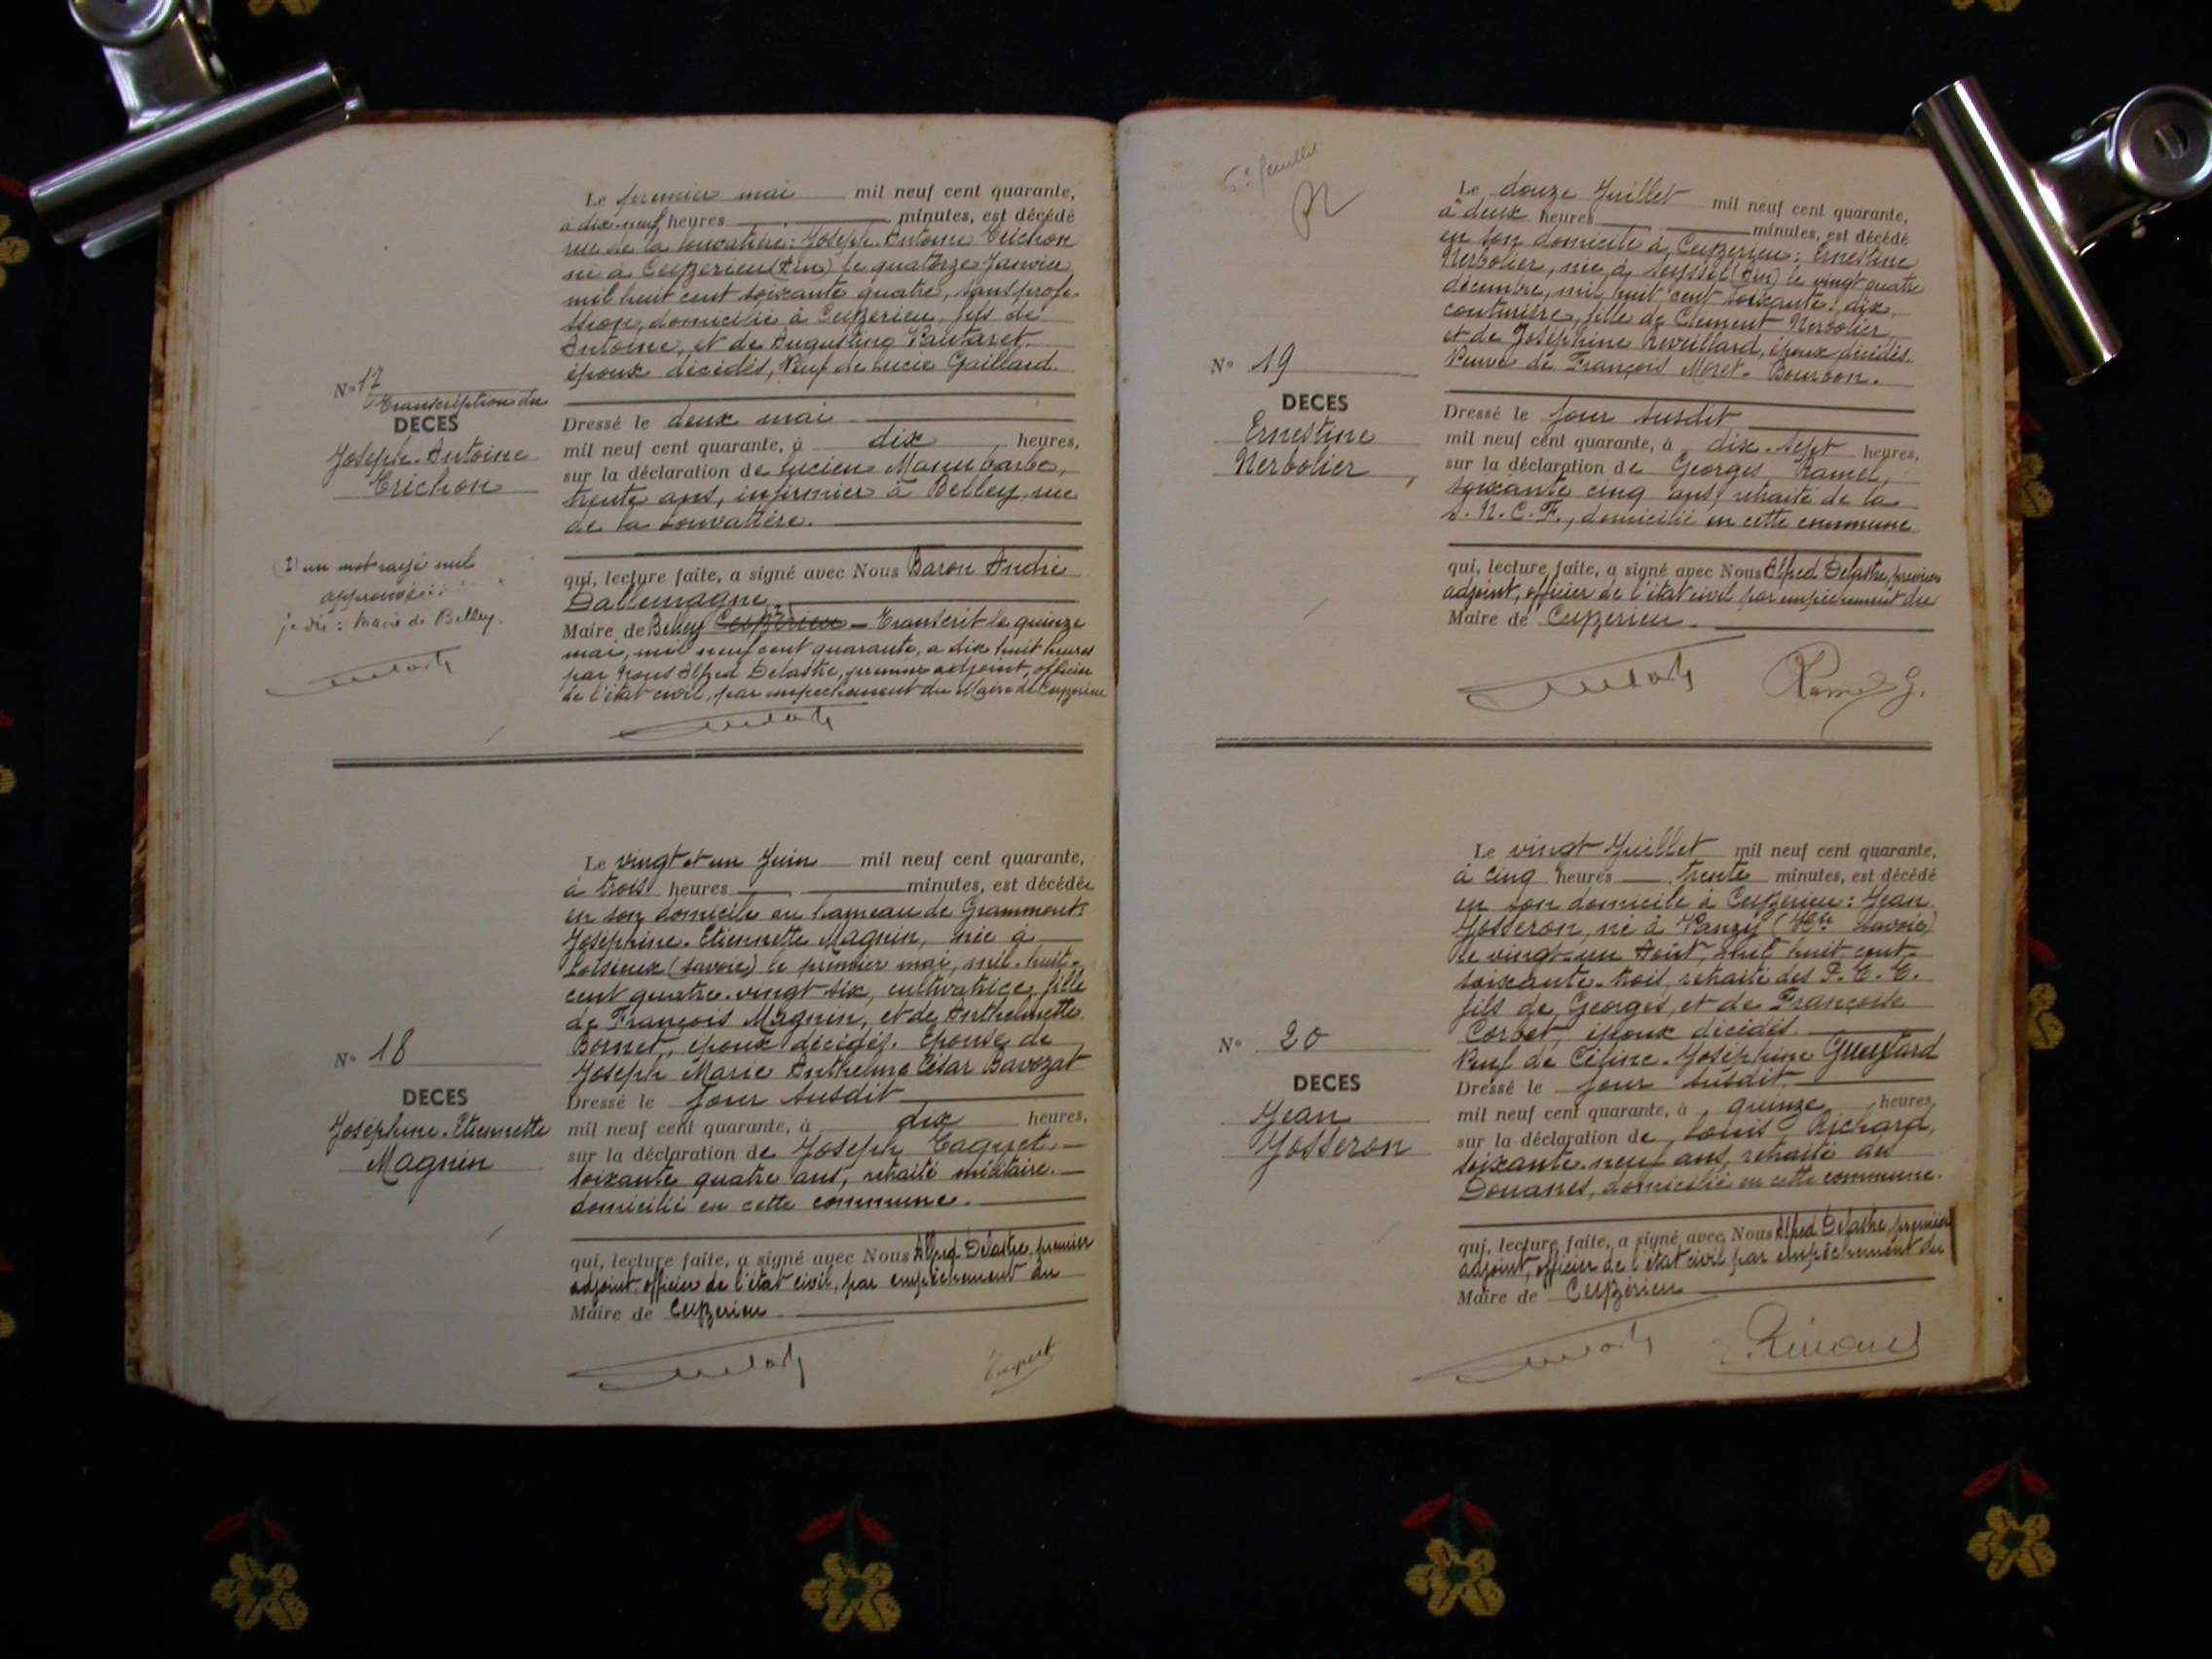 Le premier mai mil neuf cent quarante,
à dix-neuf heures minutes, est décédé
rue de la Louvatière: Joseph-Antoine Trichon
né à Ceyzerieu (Ain) le quatorze Janvier
mil huit cent soixante quatre, sans profes-
sion, domicilié à Ceyzerieu, fils de
Antoine, et de Augustine Pantaret
époux décédés, Veuf de Lucie Gaillard.
N° 17
Transcription du
DECES
Joseph-Antoine
Trichon
Dressé le deux mai
mil neuf cent quarante, à dix heures,
sur la déclaration de Lucien
trente ans, infirmier à Belley, rue
de la Louvatière.
(1) un mot rayé nul
approuvé
je dis: Maire de Belley.
qui, lecture faite, a signé avec Nous Baron André
Dallemagne
Maire de Belley Ceyzerieu (1) — Transcrit le quinze
mai, mil neuf cent quarante, à dix huit heures
par Nous Alfred Delastre, premier adjoint, officier
de l'état civil, par empêchement du Maire de Ceyzerieu
Le vingt et un Juin mil neuf cent quarante,
à trois heures minutes, est décédée
en son domicile au hameau de Grammont:
Joséphine-Etiennette Magnin, née à
Loisieux (Savoie) le premier mai, mil-huit-
cent quatre-vingt six, cultivatrice, fille
de François Magnin, et de Anthelmette
Bornet, époux décédés. Epouse de
Joseph Marie Anthelme César Bavozat
N° 18
DECES
Joséphine-Etiennette
Magnin
Dressé le jour susdit
mil neuf cent quarante, à dix heures,
sur la déclaration de Joseph Taquet
soixante quatre ans, retraité militaire
domicilié en cette commune.
qui, lecture faite, a signé avec Nous Alfred Delastre, premier
adjoint, officier de l'état civil, par empêchement du
Maire de Ceyzerieu
Taquet
feuillet
Le douze Juillet mil neuf cent quarante,
à deux heures minutes, est décédé
en son domicile à Ceyzerieu: Ernestine
Nerbolier, née à Seyssel (Ain) le vingt quatre
décembre, mil huit cent soixante-dix,
couturière, fille de Clément Nerbolier
et de Joséphine Reveillard, époux décédés.
Veuve de François Moret-Bourbon.
N° 19
DECES
Ernestine
Nerbolier
Dressé le jour susdit
mil neuf cent quarante, à dix-sept heures,
sur la déclaration de Georges Ramel,
soixante cinq ans, retraité de la
S.N.C.F., domicilié en cette commune
qui, lecture faite, a signé avec Nous Alfred Delastre, premier
adjoint, officier de l'état civil par empêchement du
Maire de Ceyzerieu.
Ramel G.
Le vingt Juillet mil neuf cent quarante,
à cinq heures trente minutes, est décédé
en son domicile à Ceyzérieu: Jean
Josseron, né à Vanzy (Hte Savoie)
le vingt-un Août, mil huit-cent-
soixante-trois, retraité des P.T.T.
fils de Georges, et de Françoise
Corbet, époux décédés.
Veuf de Céline-Joséphine
N° 20
DECES
Jean
Josseron
Dressé le jour susdit
mil neuf cent quarante, à quinze heures,
sur la déclaration de Louis Richard,
soixante-neuf ans, retraité des
Douanes, domicilié en cette commune.
qui, lecture faite, a signé avec Nous Alfred Delastre, premier
adjoint, officier de l'état civil par empêchement du
Maire de Ceyzérieu